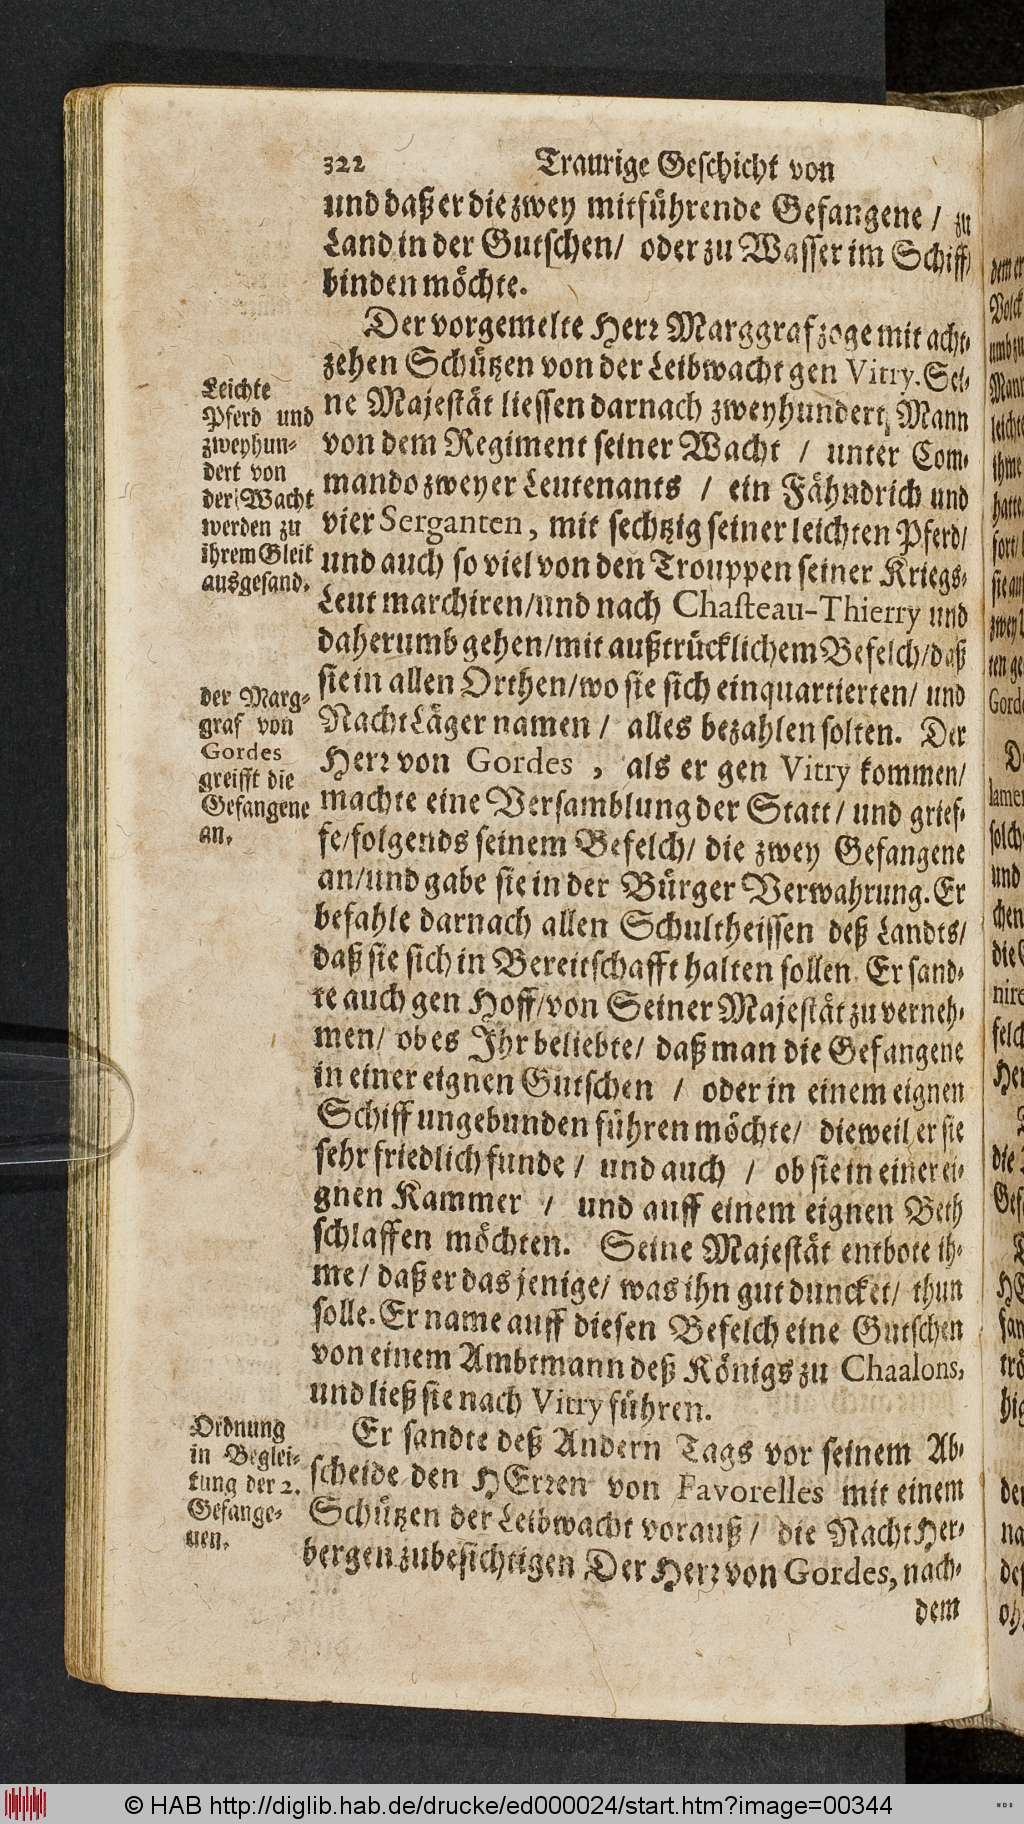 322 Traurige Geschicht von
und daß er die zwey mitführende Gefangene / zu
Land in der Gutschen / oder zu Wasser im Schiff /
binden möchte.
Der vorgemelte Herr Marggraf zoge mit acht-
zehen Schützen von der Leibwacht gen Vitry. Sei-
ne Majestät liessen darnach zweyhundert Mann
von dem Regiment seiner Wacht / unter Com-
mando zweyer Leutenants / ein Fähndrich und
vier Serganten, mit sechtzig seiner leichten Pferd /
und auch so viel von den Trouppen seiner Kriegs-
Leut marchiren / und nach Chasteau-Thierry und
daherumb gehen / mit außtrücklichem Befelch / daß
sie in allen Orthen / wo sie sich einquartierten / und
Nacht Läger namen / alles bezahlen solten. Der
Herr von Gordes , als er gen Vitry kommen /
machte eine Versamblung der Statt / und grief-
fe / folgends seinem Befelch / die zwey Gefangene
an / und gabe sie in der Bürger Verwahrung. Er
befahle darnach allen Schultheissen deß Landts /
daß sie sich in Bereitschafft halten sollen. Er sand-
te auch gen Hoff / von Seiner Majestät zu verneh-
men / ob es Ihr beliebte / daß man die Gefangene
in einer eignen Gutschen / oder in einem eignen
Schiff ungebunden führen möchte / dieweil er sie
sehr friedlich funde / und auch / ob sie in einer ei-
gnen Kammer / und auff einem eignen Beth
schlaffen möchten. Seine Majestät entbote ih-
me / daß er das jenige / was ihn gut duncket / thun
solle. Er name auff diesen Befelch eine Gutschen
von einem Ambtmann deß Königs zu Chaalons,
und ließ sie nach Vitry führen.
Er sandte deß Andern Tags vor seinem Ab-
scheide den HErren von Favorelles mit einem
Schützen der Leibwacht vorauß / die Nacht Her-
bergen zubesichtigen Der Herr von Gordes, nach-
dem
Leichte
Pferd und
zweyhun-
dert von
der Wacht
werden zu
ihrem Gleit
ausgesand.
der Marg-
graf von
Gordes
greifft die
Gefangene
an.
Ordnung
in Beglei-
tung der 2.
Gefange-
nen.
© HAB http://diglib.hab.de/drucke/ed000024/start.htm?image=00344